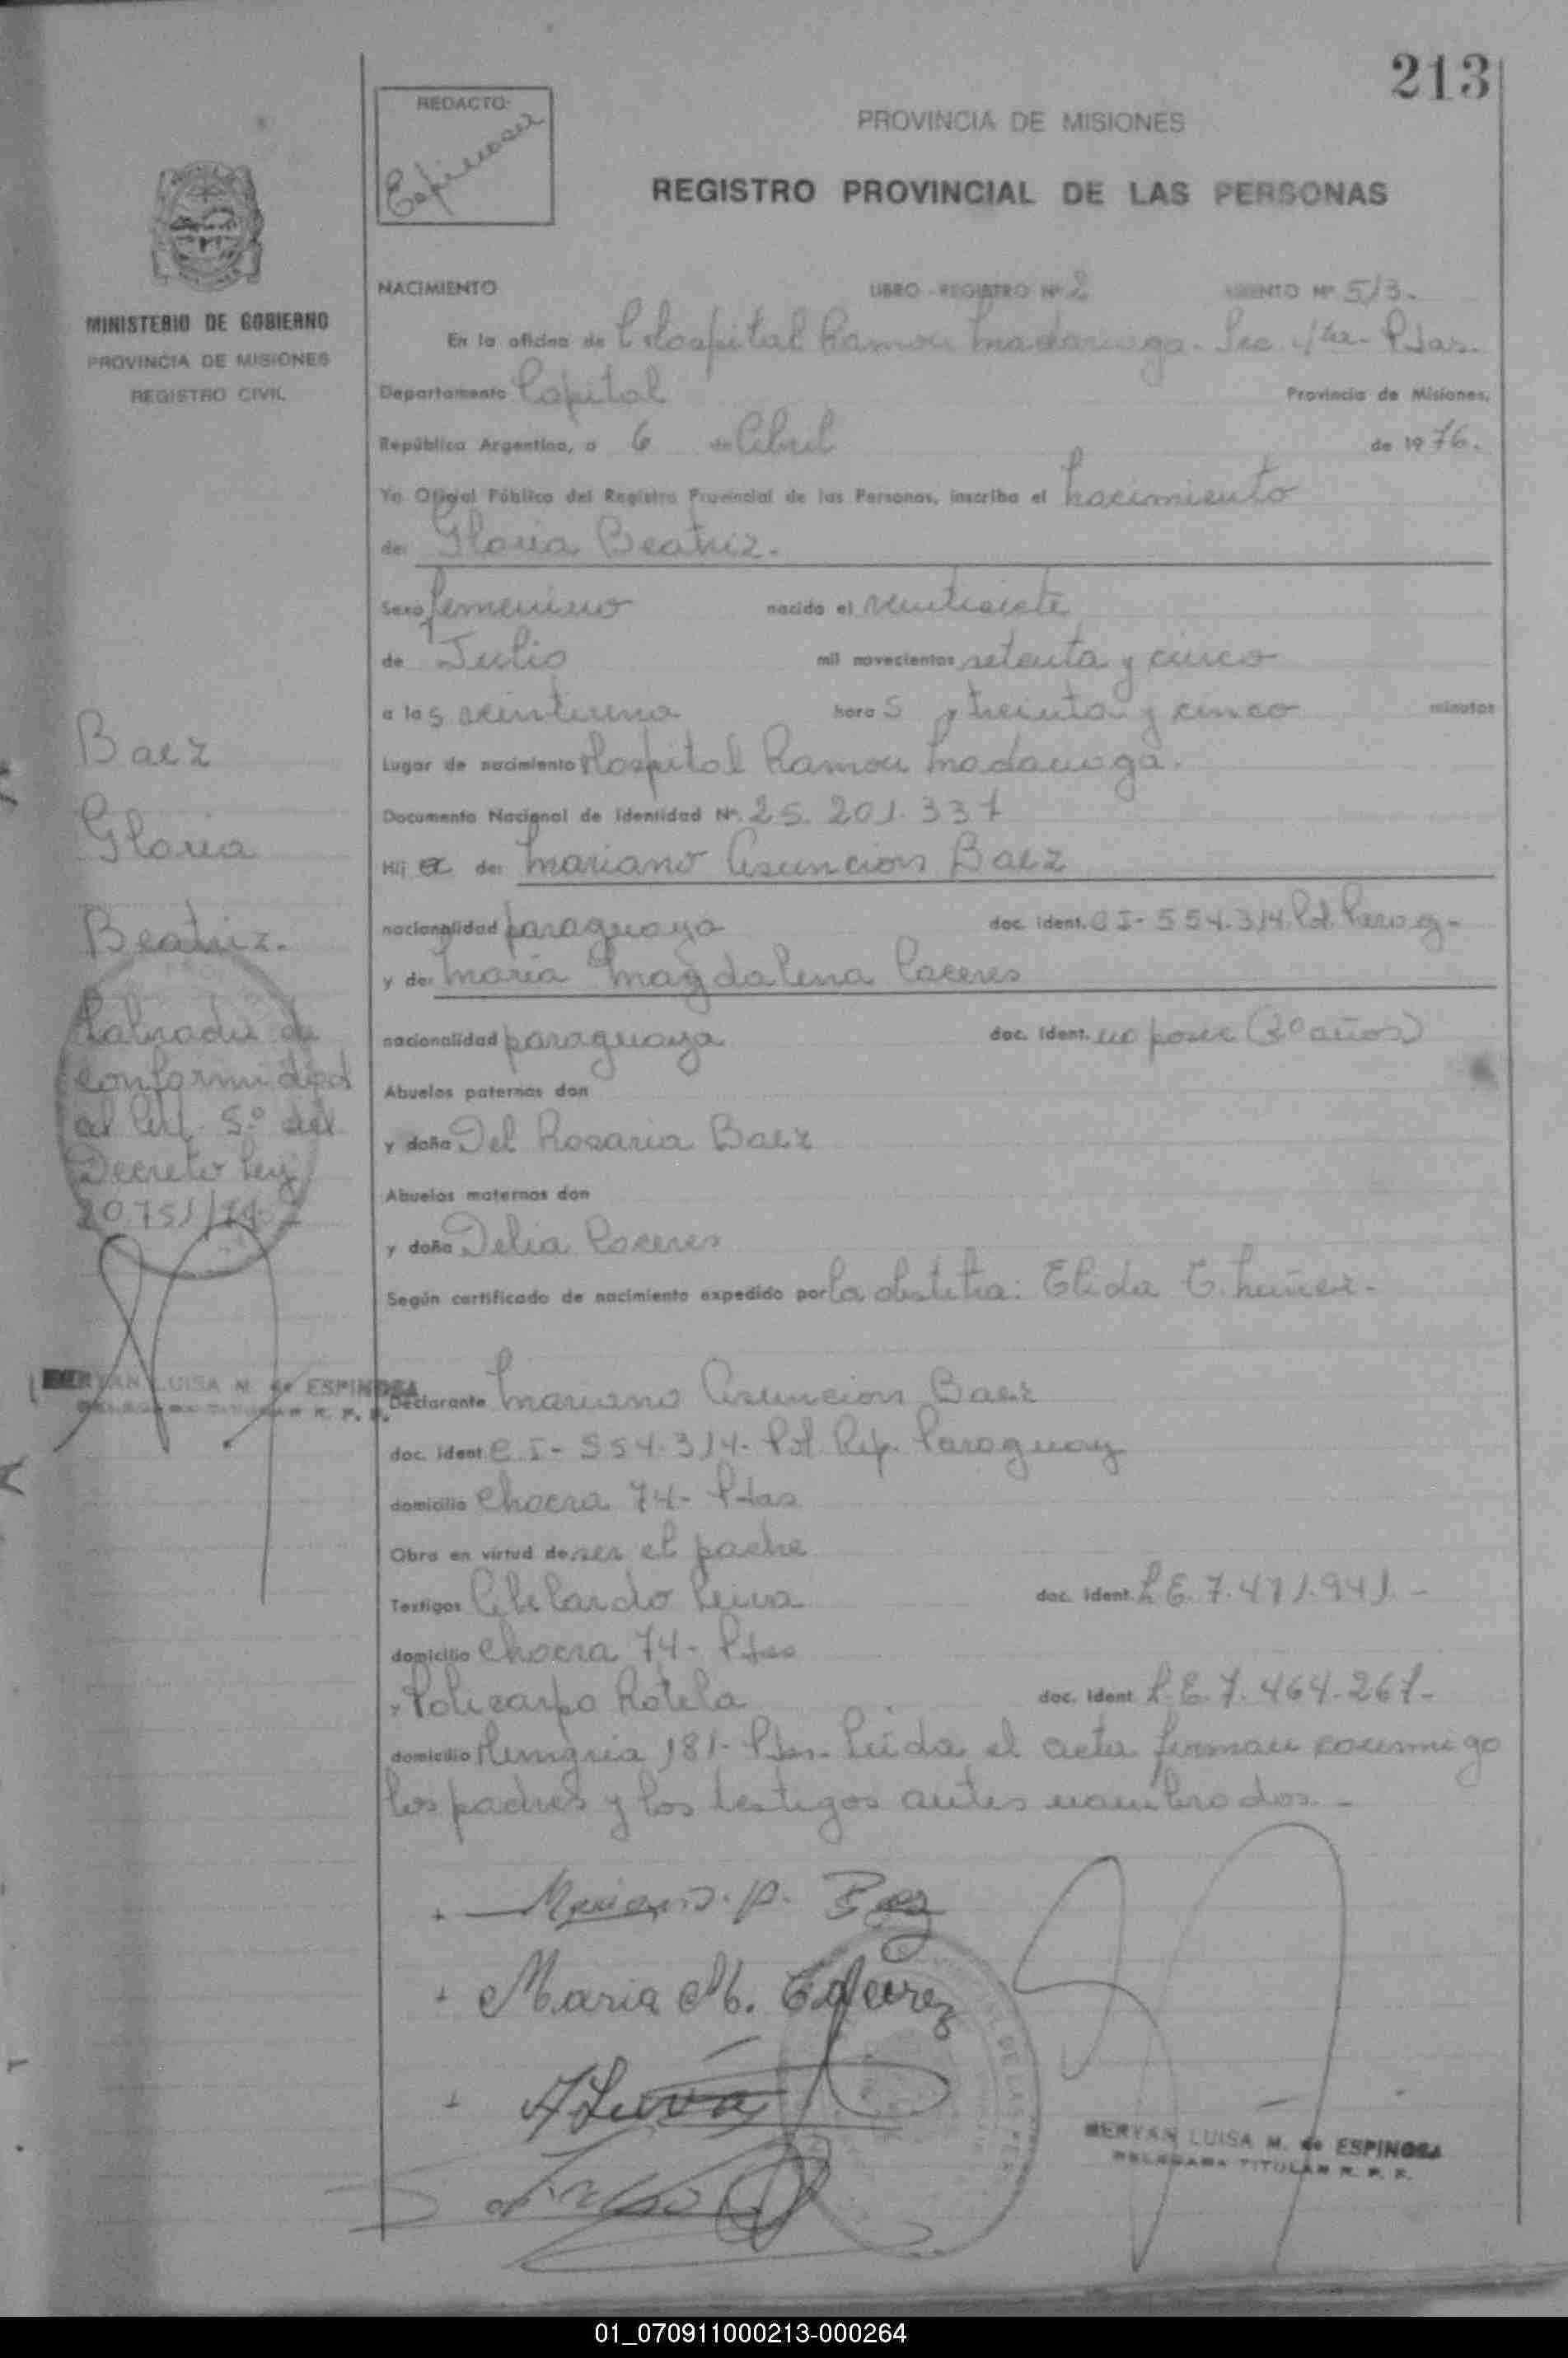 213
REDACTO:
Espinosa
PROVINCIA DE MISIONES
REGISTRO PROVINCIAL DE LAS PERSONAS
MINISTERIO DE GOBIERNO
PROVINCIA DE MISIONES
REGISTRO CIVIL
NACIMIENTO LIBRO - REGISTRO Nº 2 ASIENTO Nº 513.
En la oficina de Hospital Ramon Madariaga - Sec. 1ra - Pdas.
Departamento Capital Provincia de Misiones,
República Argentina, a 6 de Abril de 1976.
Yo Oficial Público del Registro Provincial de las Personas, inscribo el Nacimiento
de: Gloria Beatriz.
Sexo femenino nacido el veintisiete
de Julio mil novecientos setenta y cinco
a las veintiuna horas y treinta y cinco minutos
Lugar de nacimiento Hospital Ramon Madariaga.
Documento Nacional de Identidad Nº. 25.201.337
Hija de: Mariano Asuncion Baez
nacionalidad paraguaya doc. ident. CI- 554.314. Pol. Parag-
y de: Maria Magdalena Caceres
nacionalidad paraguaya doc. ident. no posee (30 años)
Abuelos paternos don
y doña Del Rosario Baez
Abuelos maternos don
y doña Delia Caceres
Según certificado de nacimiento expedido por la obstetra: Elida E. Nuñez.-
Baez
Gloria
Beatriz.
Labrada de
conformidad
al Art. 5º del
Decreto Ley
20.751/74.
MERYAN LUISA M. de ESPINOSA
DELEGADA TITULAR R. P. P.
Declarante Mariano Asuncion Baez
doc. ident. C.I- 554.314- Pol Rep. Paraguay
domicilio Chacra 74- Pdas
Obra en virtud de ser el padre
Testigos Abelardo Leiva doc. ident. L E. 7.471.941.-
domicilio Chacra 74- Pdas
y Policarpo Rotela doc. ident L.E. 7.464.267-
domicilio Hungria 181- Pdas. Leida el acta firman conmigo
los padres y los testigos antes nombrados.-
Mariano. A. Baez
Maria M.
A Leiva
MERYAN LUISA M. de ESPINOSA
DELEGADA TITULAR R. P. P.
01_070911000213-000264